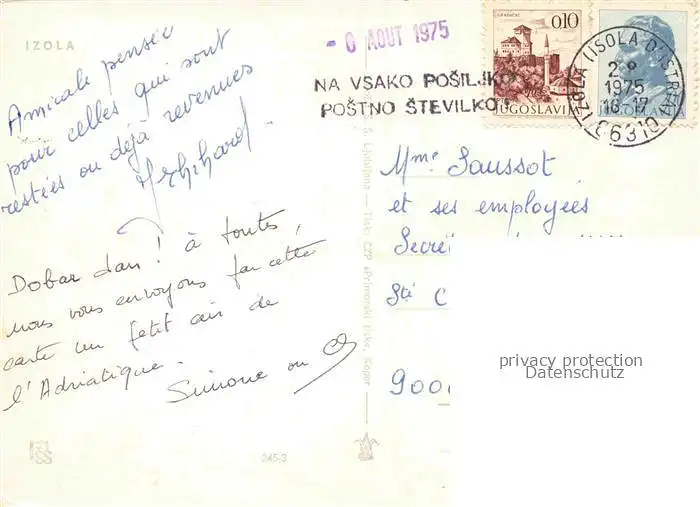 IZOLA
Amicale pensée
pour celles qui sont
restées ou déjà revenues
Dobar dan! à toutes,
nous vous envoyons par cette
carte un petit air de
l'Adriatique.
Simone
245-3
S. Ljubljana — Tisk: CZP »Primorski tisk«, Koper
- 6 AOUT 1975
NA VSAKO POŠILJKO
POŠTNO ŠTEVILKO!
0,10
JUGOSLAVIJA
IZOLA (ISOLA D'ISTRIA)
2.8
1975
16-17
66310
Mme Saussot
et ses employées
Secré
Sté C
9000
privacy protection
Datenschutz